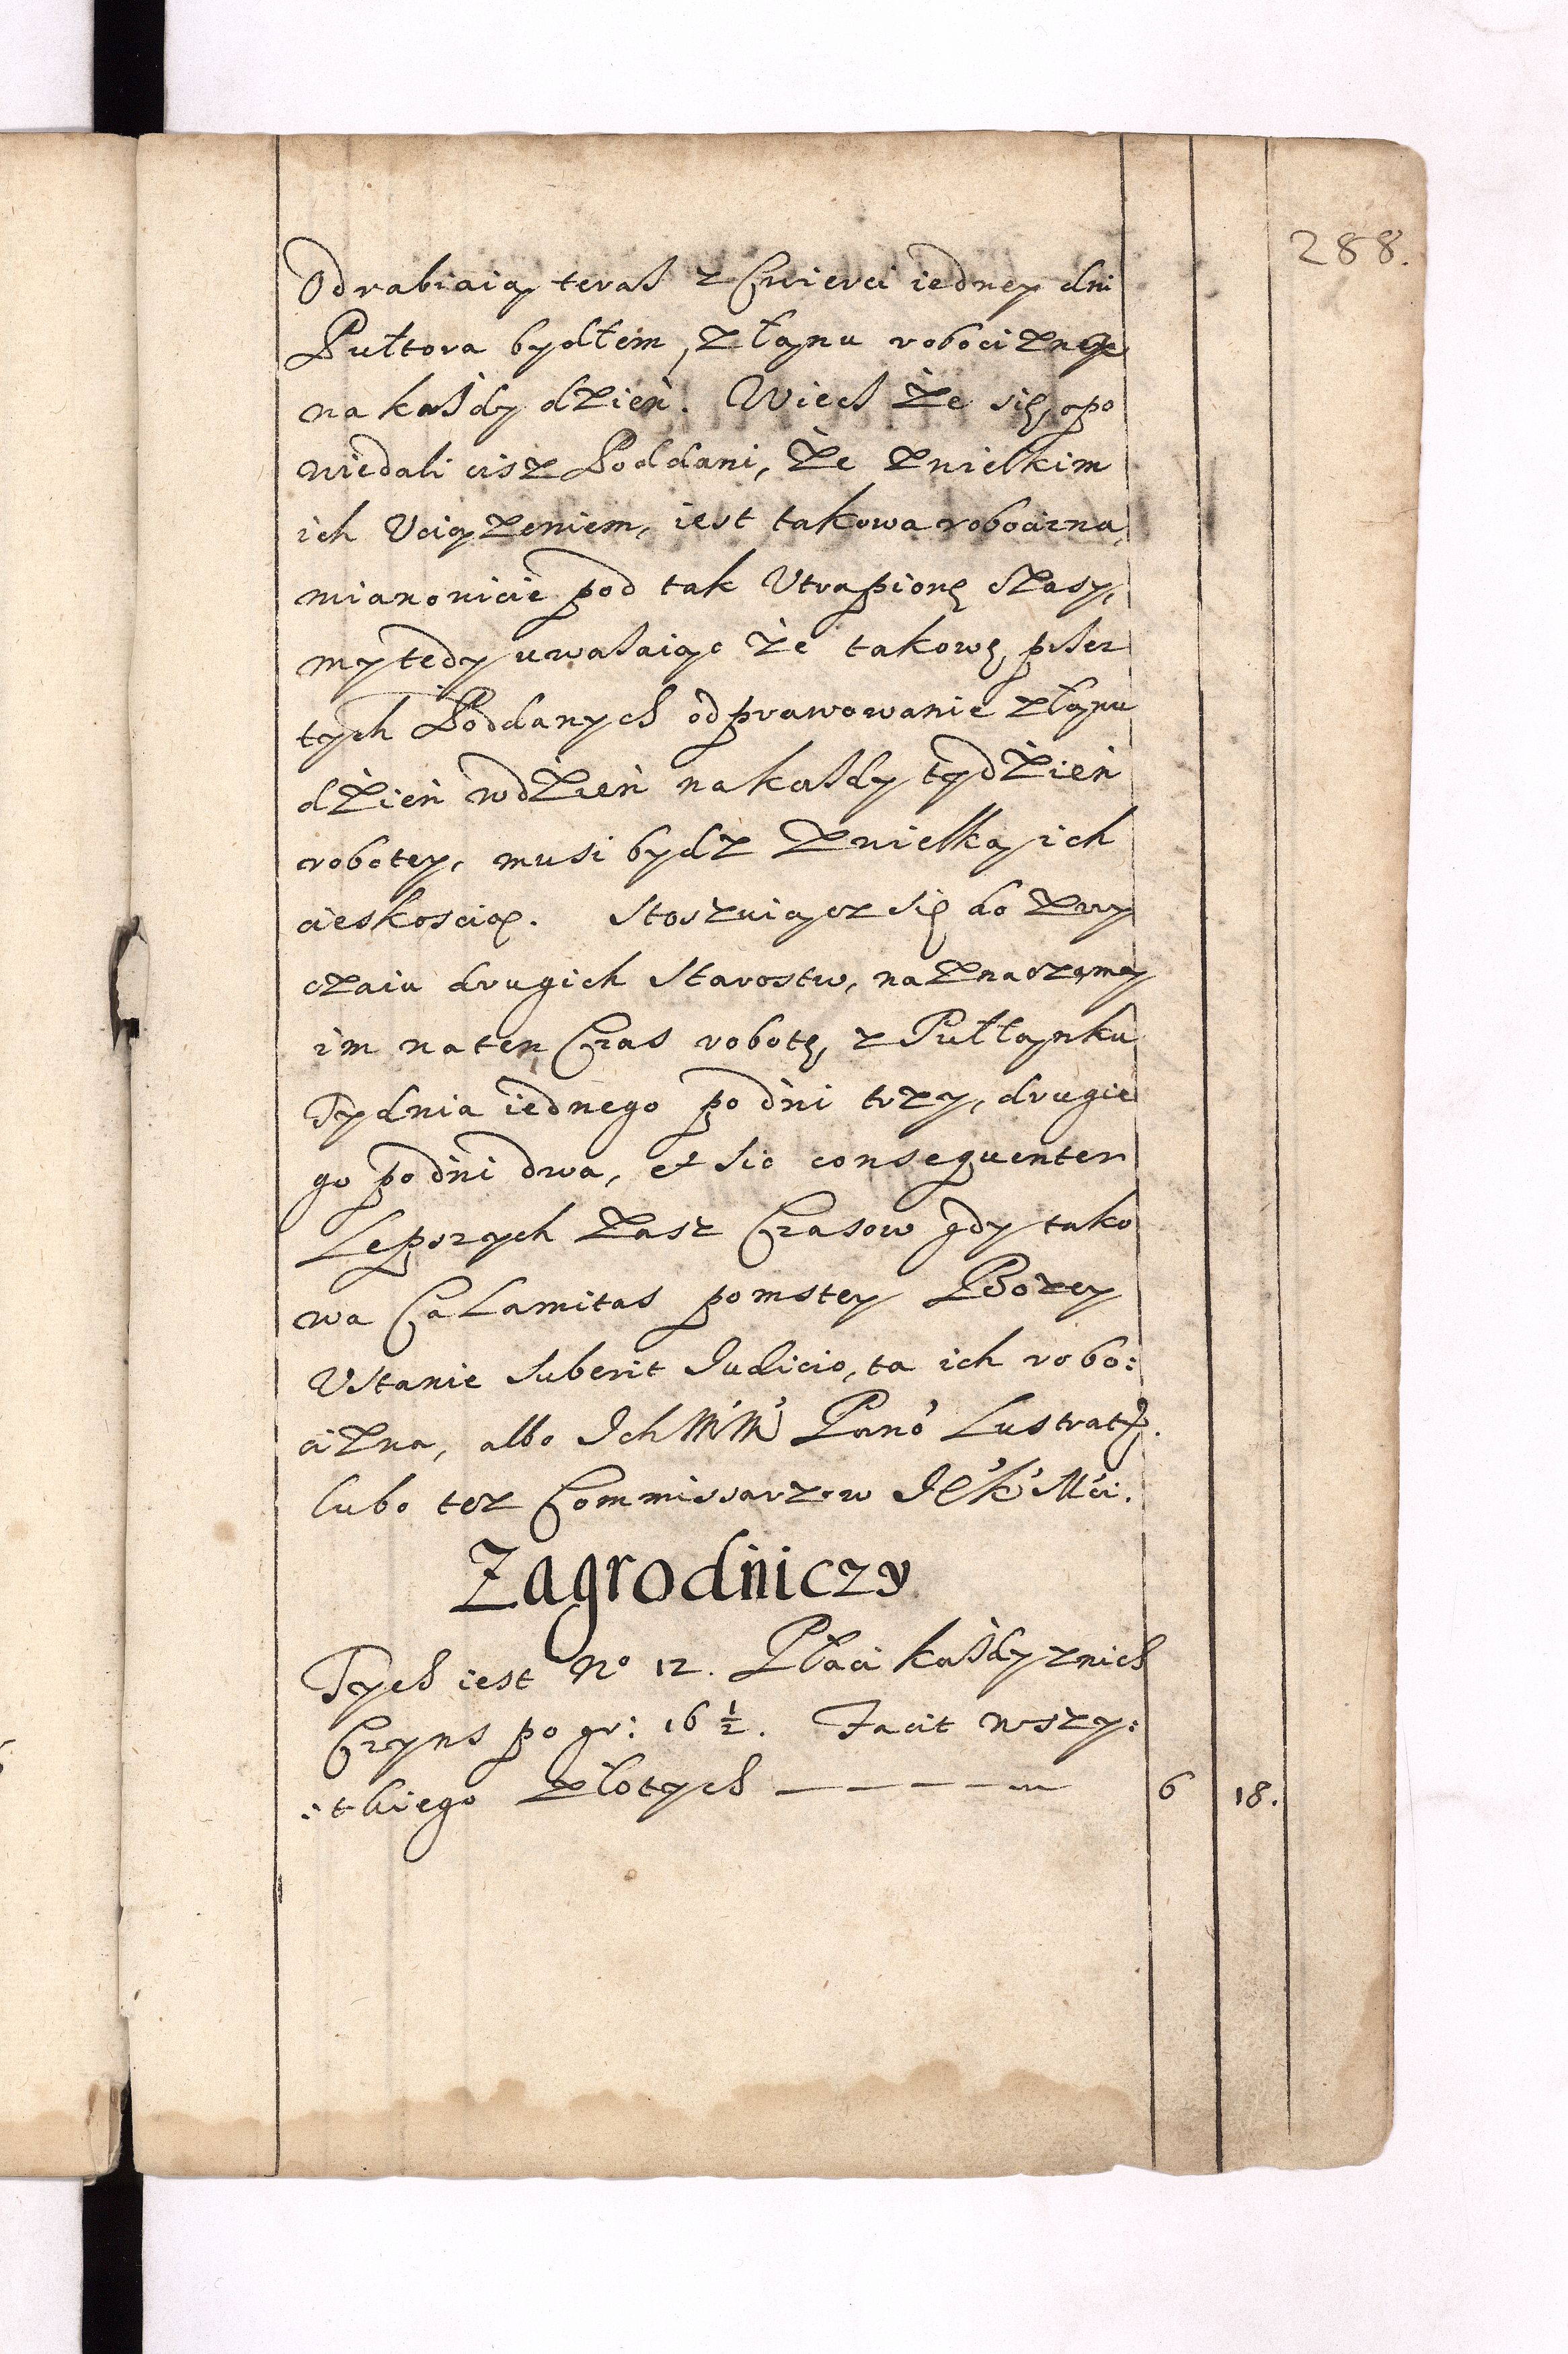 288.
Odrabiaią teras z Cwierci iedney dni
Pułtora bydłem, z łanu robociznę
na kasdy dzień. Wiech że się opo
wiedali cisz Poddani, że zwielkim
ich Uciązeniem, iest takowa robocizna,
mianowicie pod tak Utrapionę czasy,
my tedy uwasaiąc że takowę przez
tych Poddanych odprawowanie złanu
dzień wdzień na kasdy tydzień
robotey, musi bydz zwielką ich
cieskoscią. Stoszuiącz się do zwy
czaiu drugich Starostw, naznaczamy
im naten Czas robotę, z Pułłanku
Tydnia iednego po dni trzy, drugie
go po dni dwa, et sic consequenter
Lepszych zasz Czasow gdy tako
wa Calamitas pomstey Bozey
Ustanie suberit Iudicio, ta ich robo:
cizna, albo Ich MM Panó Lustrat.
lubo tez Commissarzow JeK Mći.
Zagrodniczy
Tych iest No 12. Płaci kasdy znich
Czyns po gr: 16 ½. Facit wszy:
:tkiego złotych — — — — 6 18.